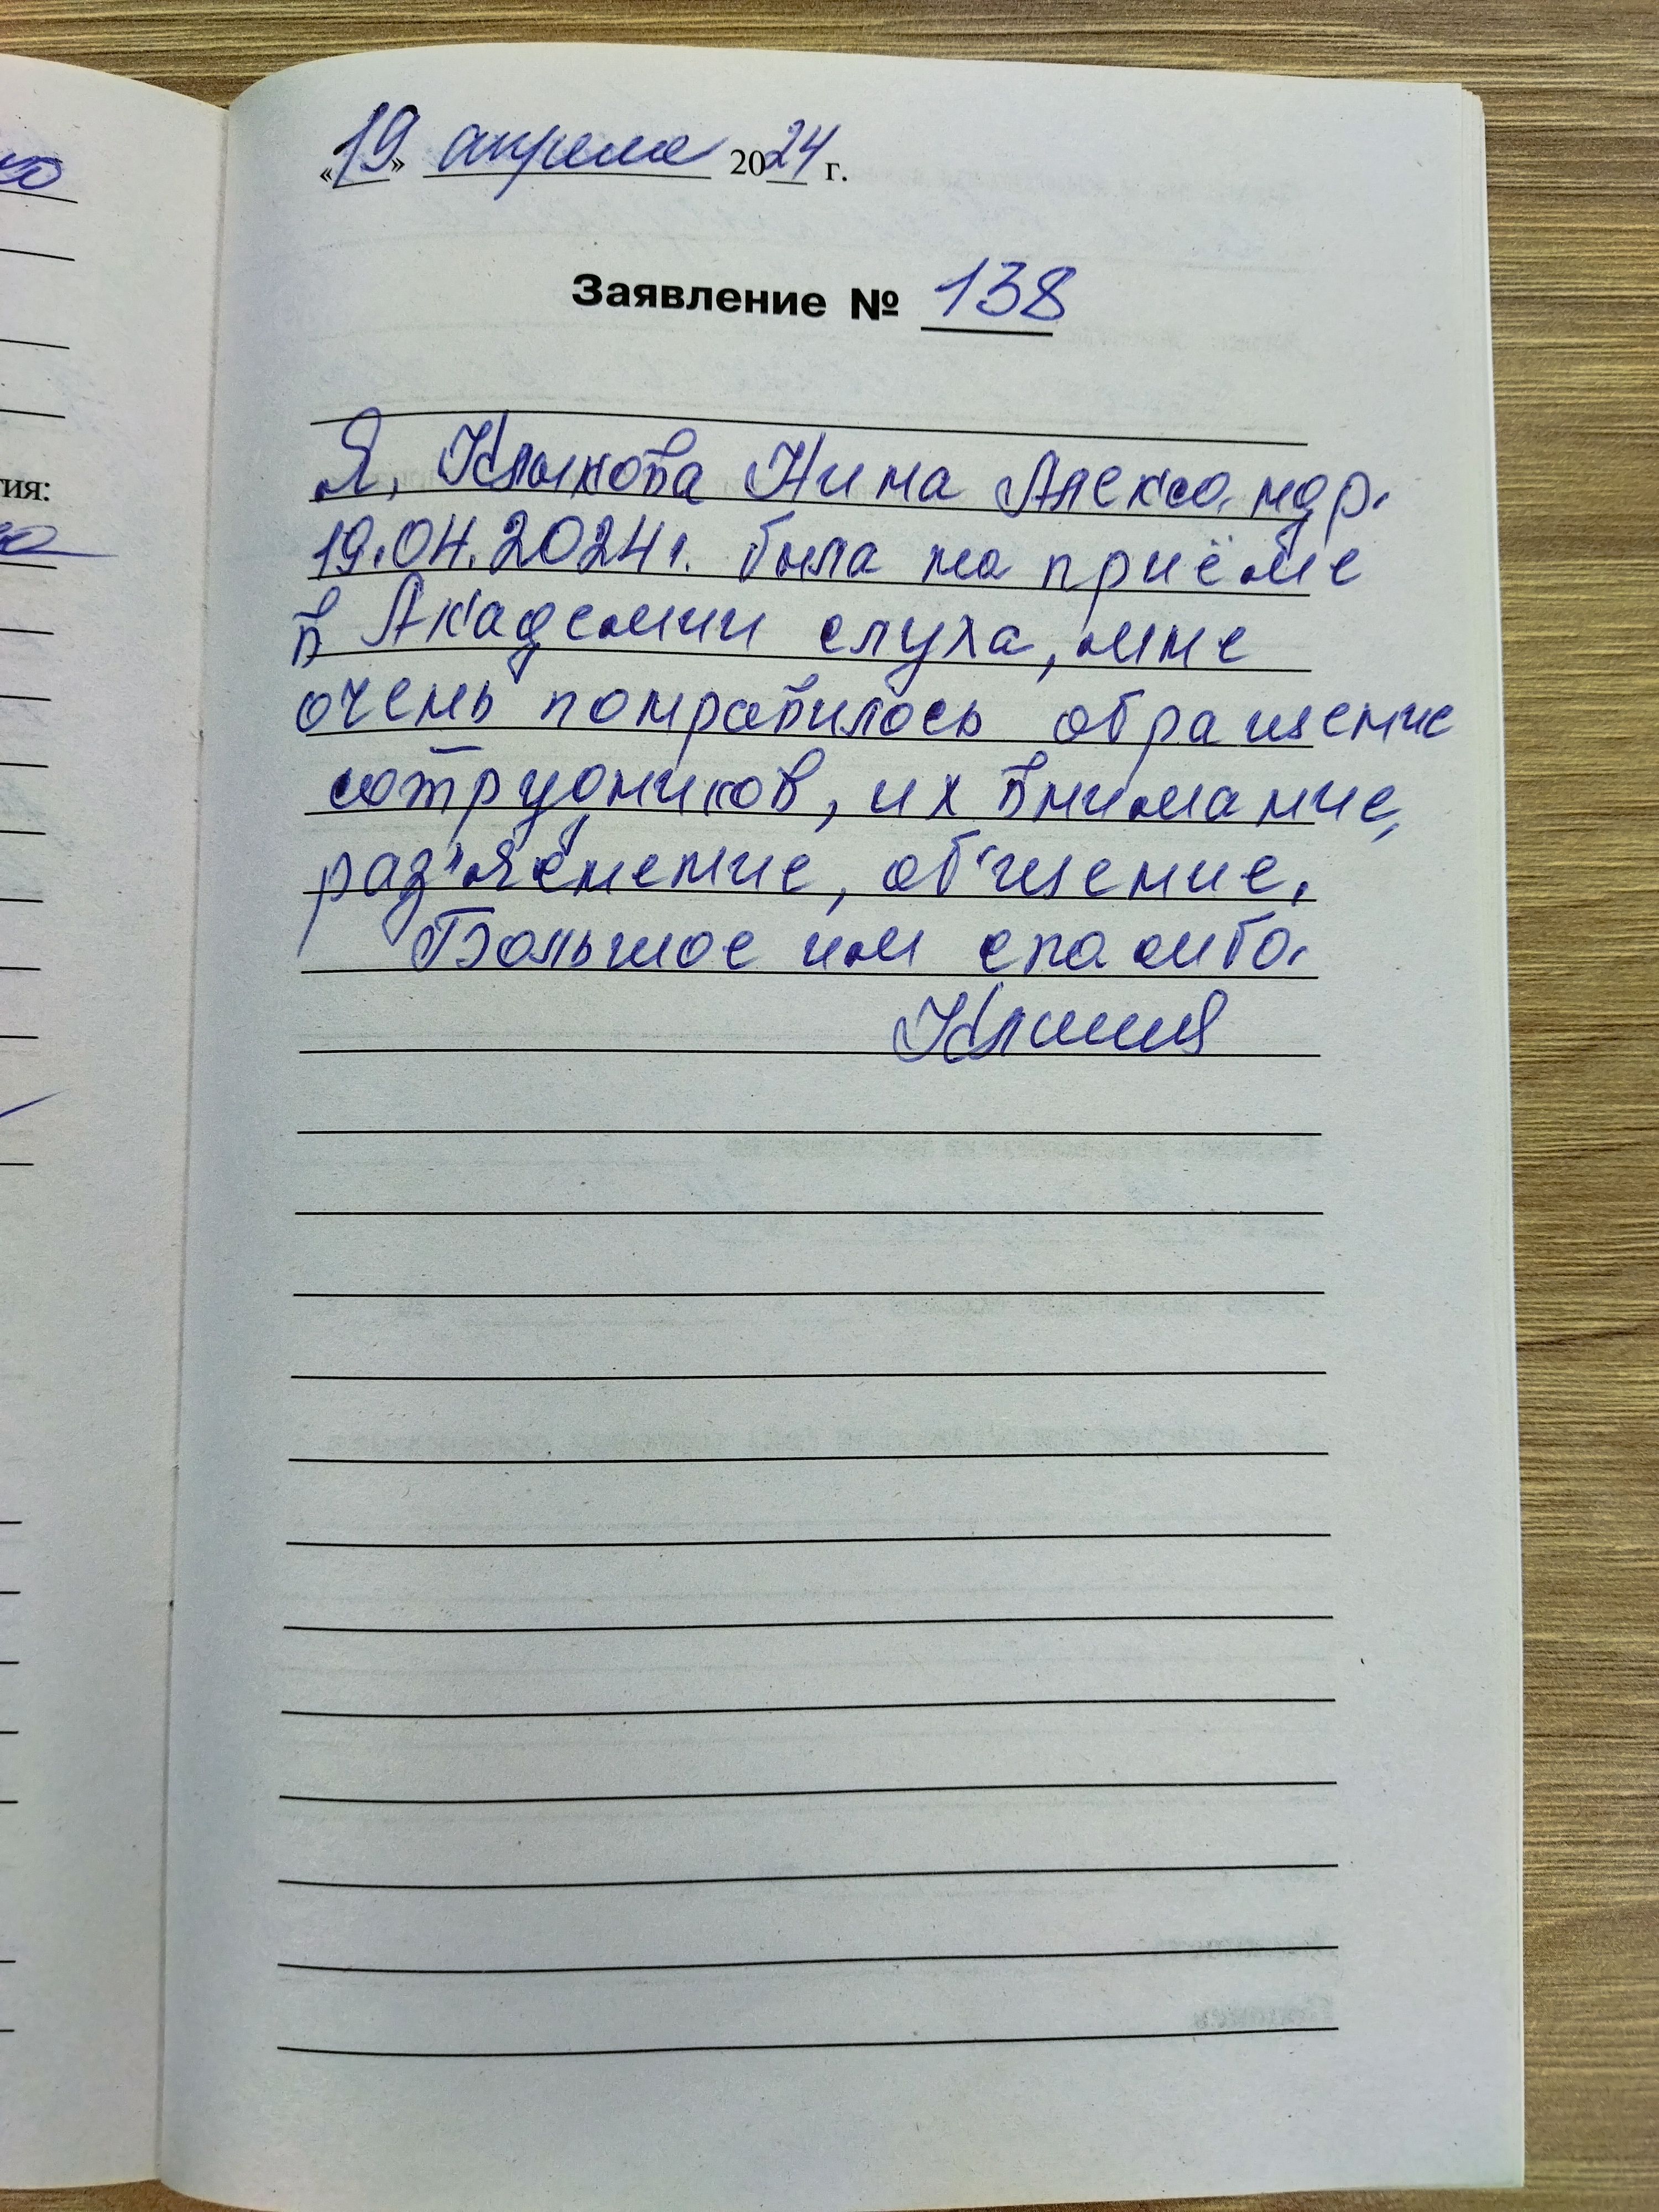 «19» апреля 2024 г.
Заявление № 138
Я, Клыкова Нина Александр.
19.04.2024г. была на приёме
в Академии слуха, мне
очень понравилось обращение
сотрудников, их внимание,
раз'яснение, об'щение.
Большое им спасибо.
тия: